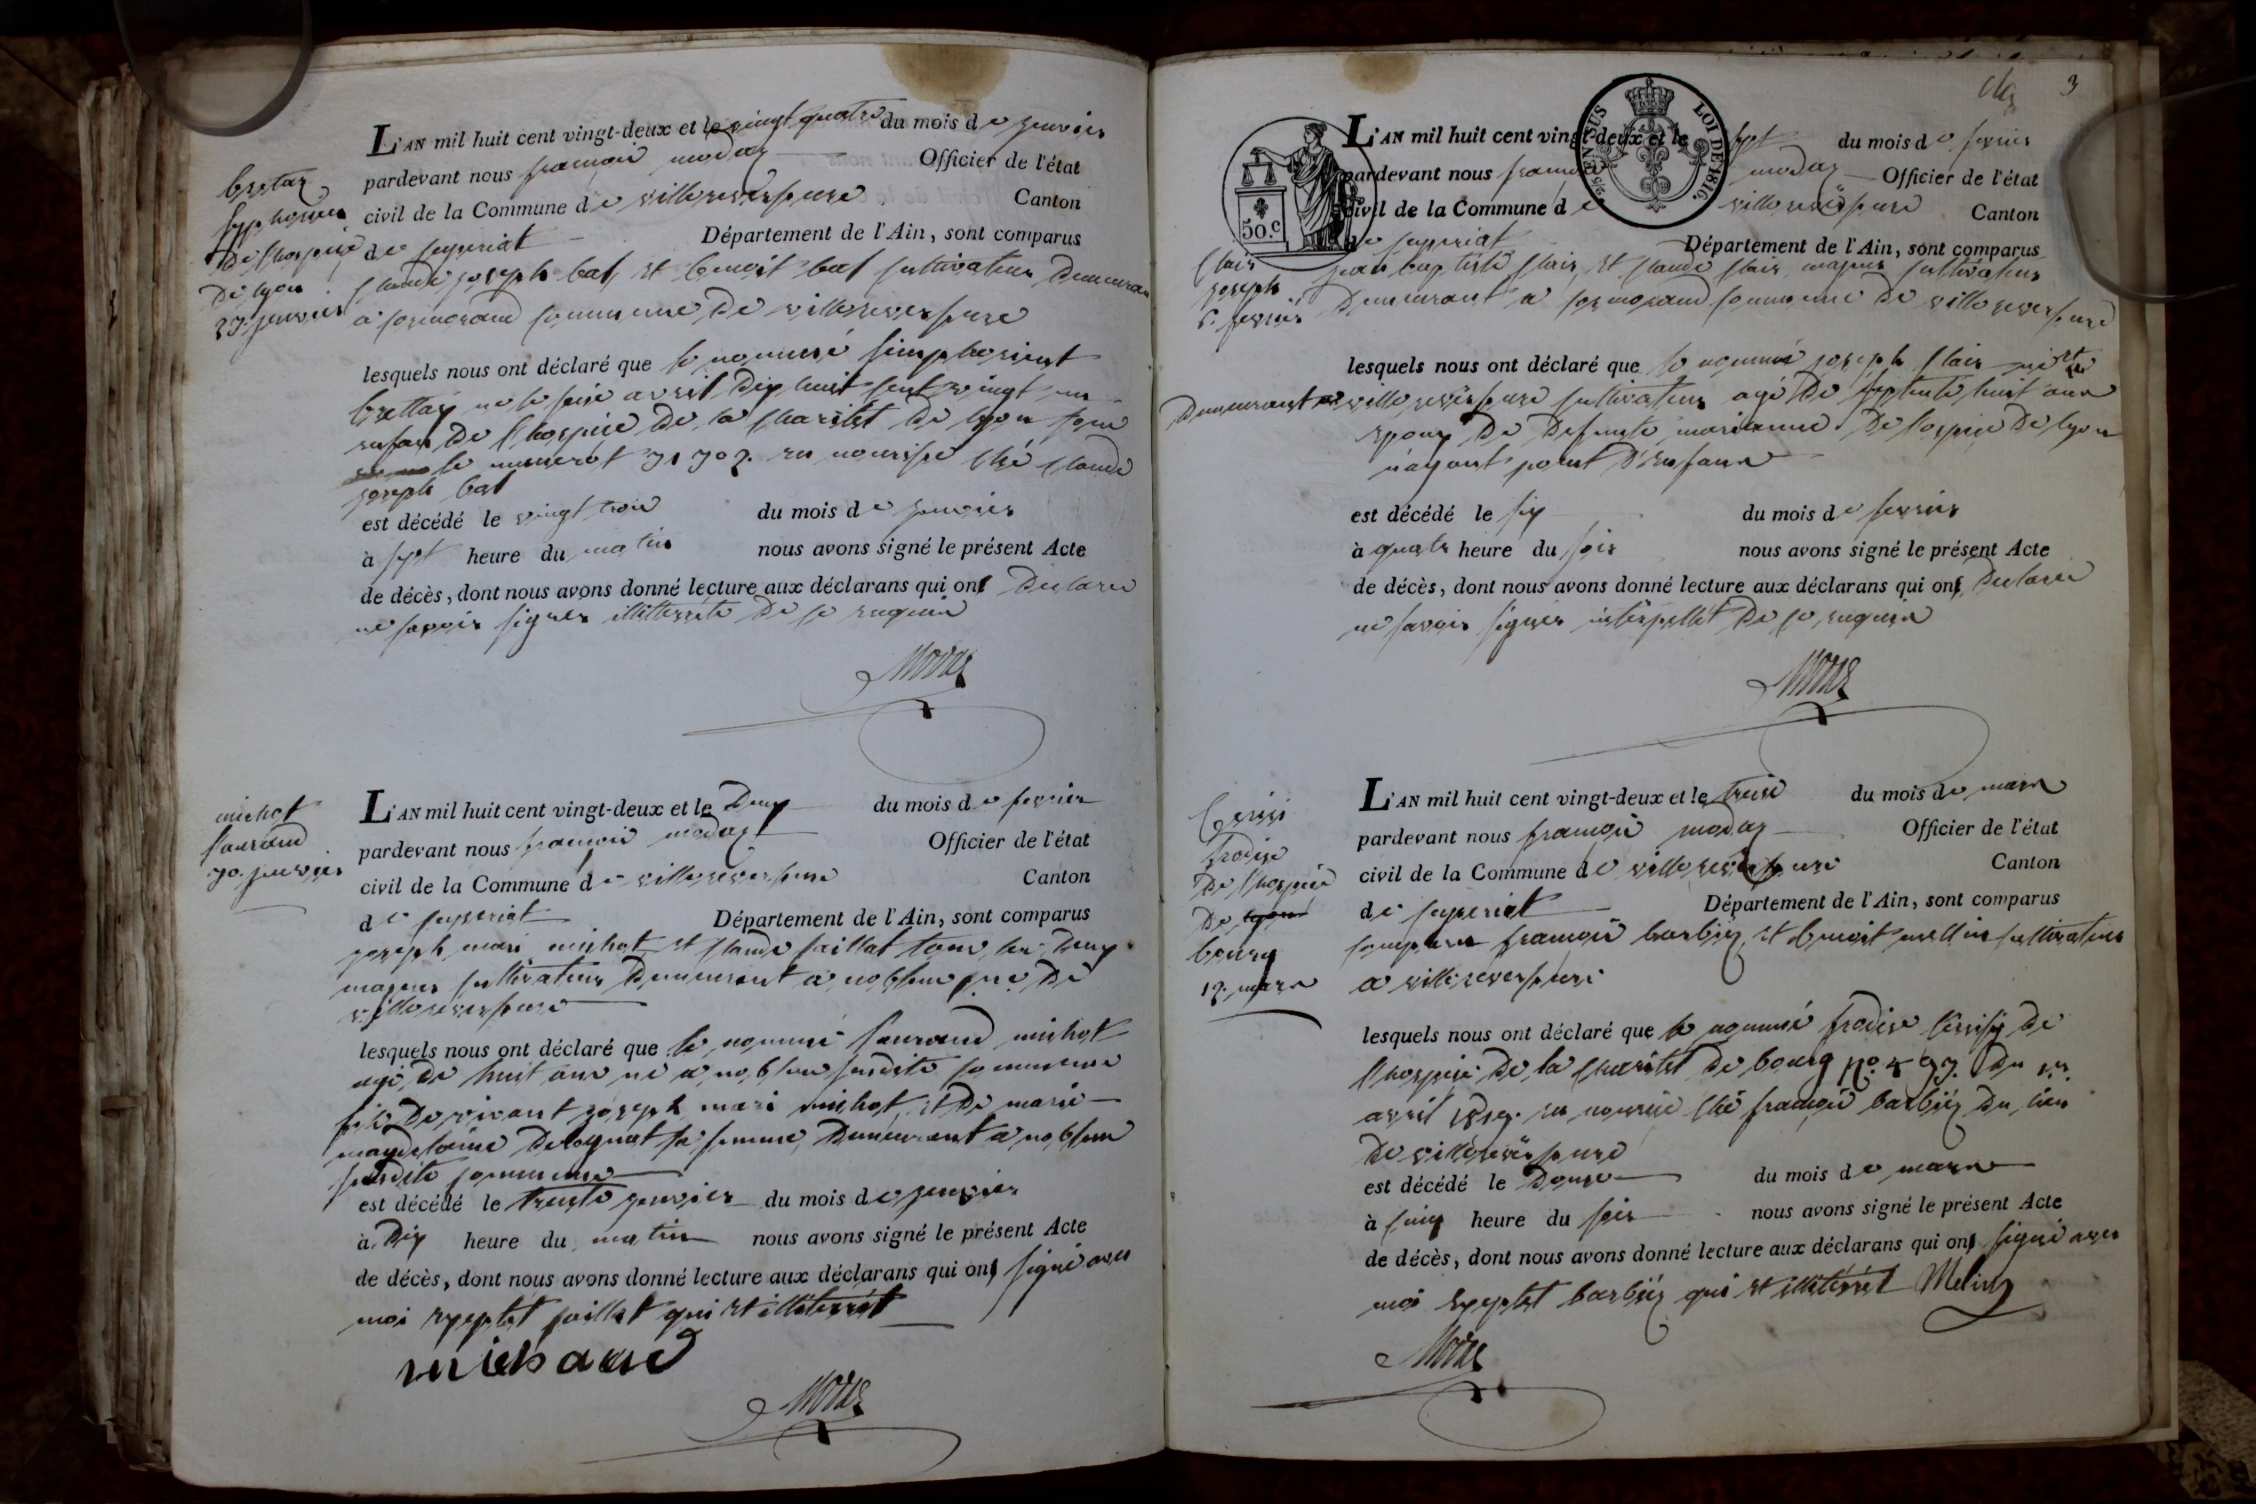 L'AN mil huit cent vingt-deux et le vingt quatre du mois de janvier
pardevant nous francois modaz Officier de l'état
civil de la Commune de villereversure Canton
de seyseriat Département de l'Ain, sont comparus
claude joseph bal et benoit bal cultivateur demeuran
a commune de villereversure
lesquels nous ont déclaré que le nommé simphorient
brettay né le seise avril dix huit cent vingt un
enfan de lhospice de la charitet de lyon sous
le numerot en nourise ché claude
joseph bal
est décédé le vingt trois du mois de janvier
à sept heure du matin nous avons signé le présent Acte
de décès, dont nous avons donné lecture aux déclarans qui ont declaré
ne savoir signer illitteréte de ce enquis
Modaz
de lhospice
de lyon
23. janvier
michot
30. janvier
L'AN mil huit cent vingt-deux et le deux du mois de fevrier
pardevant nous francois modaz Officier de l'état
civil de la Commune de villereversure Canton
de seyseriat Département de l'Ain, sont comparus
joseph mari michot et claude saillat tous les deux
majeur cultivateur demeurant a noblens de
villereversure
lesquels nous ont déclaré que le nommé michot
agé de huit ans né a noblens susdite commune
fils de vivant joseph mari michot et de marie
magdelaine sa femme demeurant a noblens
susdite commune
est décédé le trente janvier du mois de janvier
à dix heure du matin nous avons signé le présent Acte
de décès, dont nous avons donné lecture aux déclarans qui ont signé avec
moi exeptet saillat qui et illiterrét
Modaz
3
50.c
LOI DE 1816.
L'AN mil huit cent vingt-deux et le sept du mois de fevrier
pardevant nous francois modaz Officier de l'état
civil de la Commune de villereversure Canton
de seyseriat Département de l'Ain, sont comparus
jean baptiste clair et claude clair majeur cultivateur
demeurant a commune de villereversure
clair
joseph
6. fevrier
lesquels nous ont déclaré que le nommé joseph clair né et
demeurant a villereversure cultivateur agé de septente huit ans
epoux de defunte marianne de lospice de lyon
n'ayant point d'enfans
est décédé le six du mois de fevrier
à quatre heure du soir nous avons signé le présent Acte
de décès, dont nous avons donné lecture aux déclarans qui ont declaré
ne savoir signer interpellét de ce enquis
Modaz
de lhospice
de lyon
bourg
12. mars
L'AN mil huit cent vingt-deux et le treise du mois de mars
pardevant nous francois modaz Officier de l'état
civil de la Commune de villereversure Canton
de seyseriat Département de l'Ain, sont comparus
comparu francois barbiez et benoit mellin cultivateur
a villereversure
lesquels nous ont déclaré que le nommé de
lhospice de la charitet de bourg du 1er
avril en nourise ché francois barbiez du lieu
de villereversure
est décédé le douse du mois de mars
à cinq heure du soir nous avons signé le présent Acte
de décès, dont nous avons donné lecture aux déclarans qui ont signé avec
moi exeptet barbiez qui et illitérrét Melin
Modaz